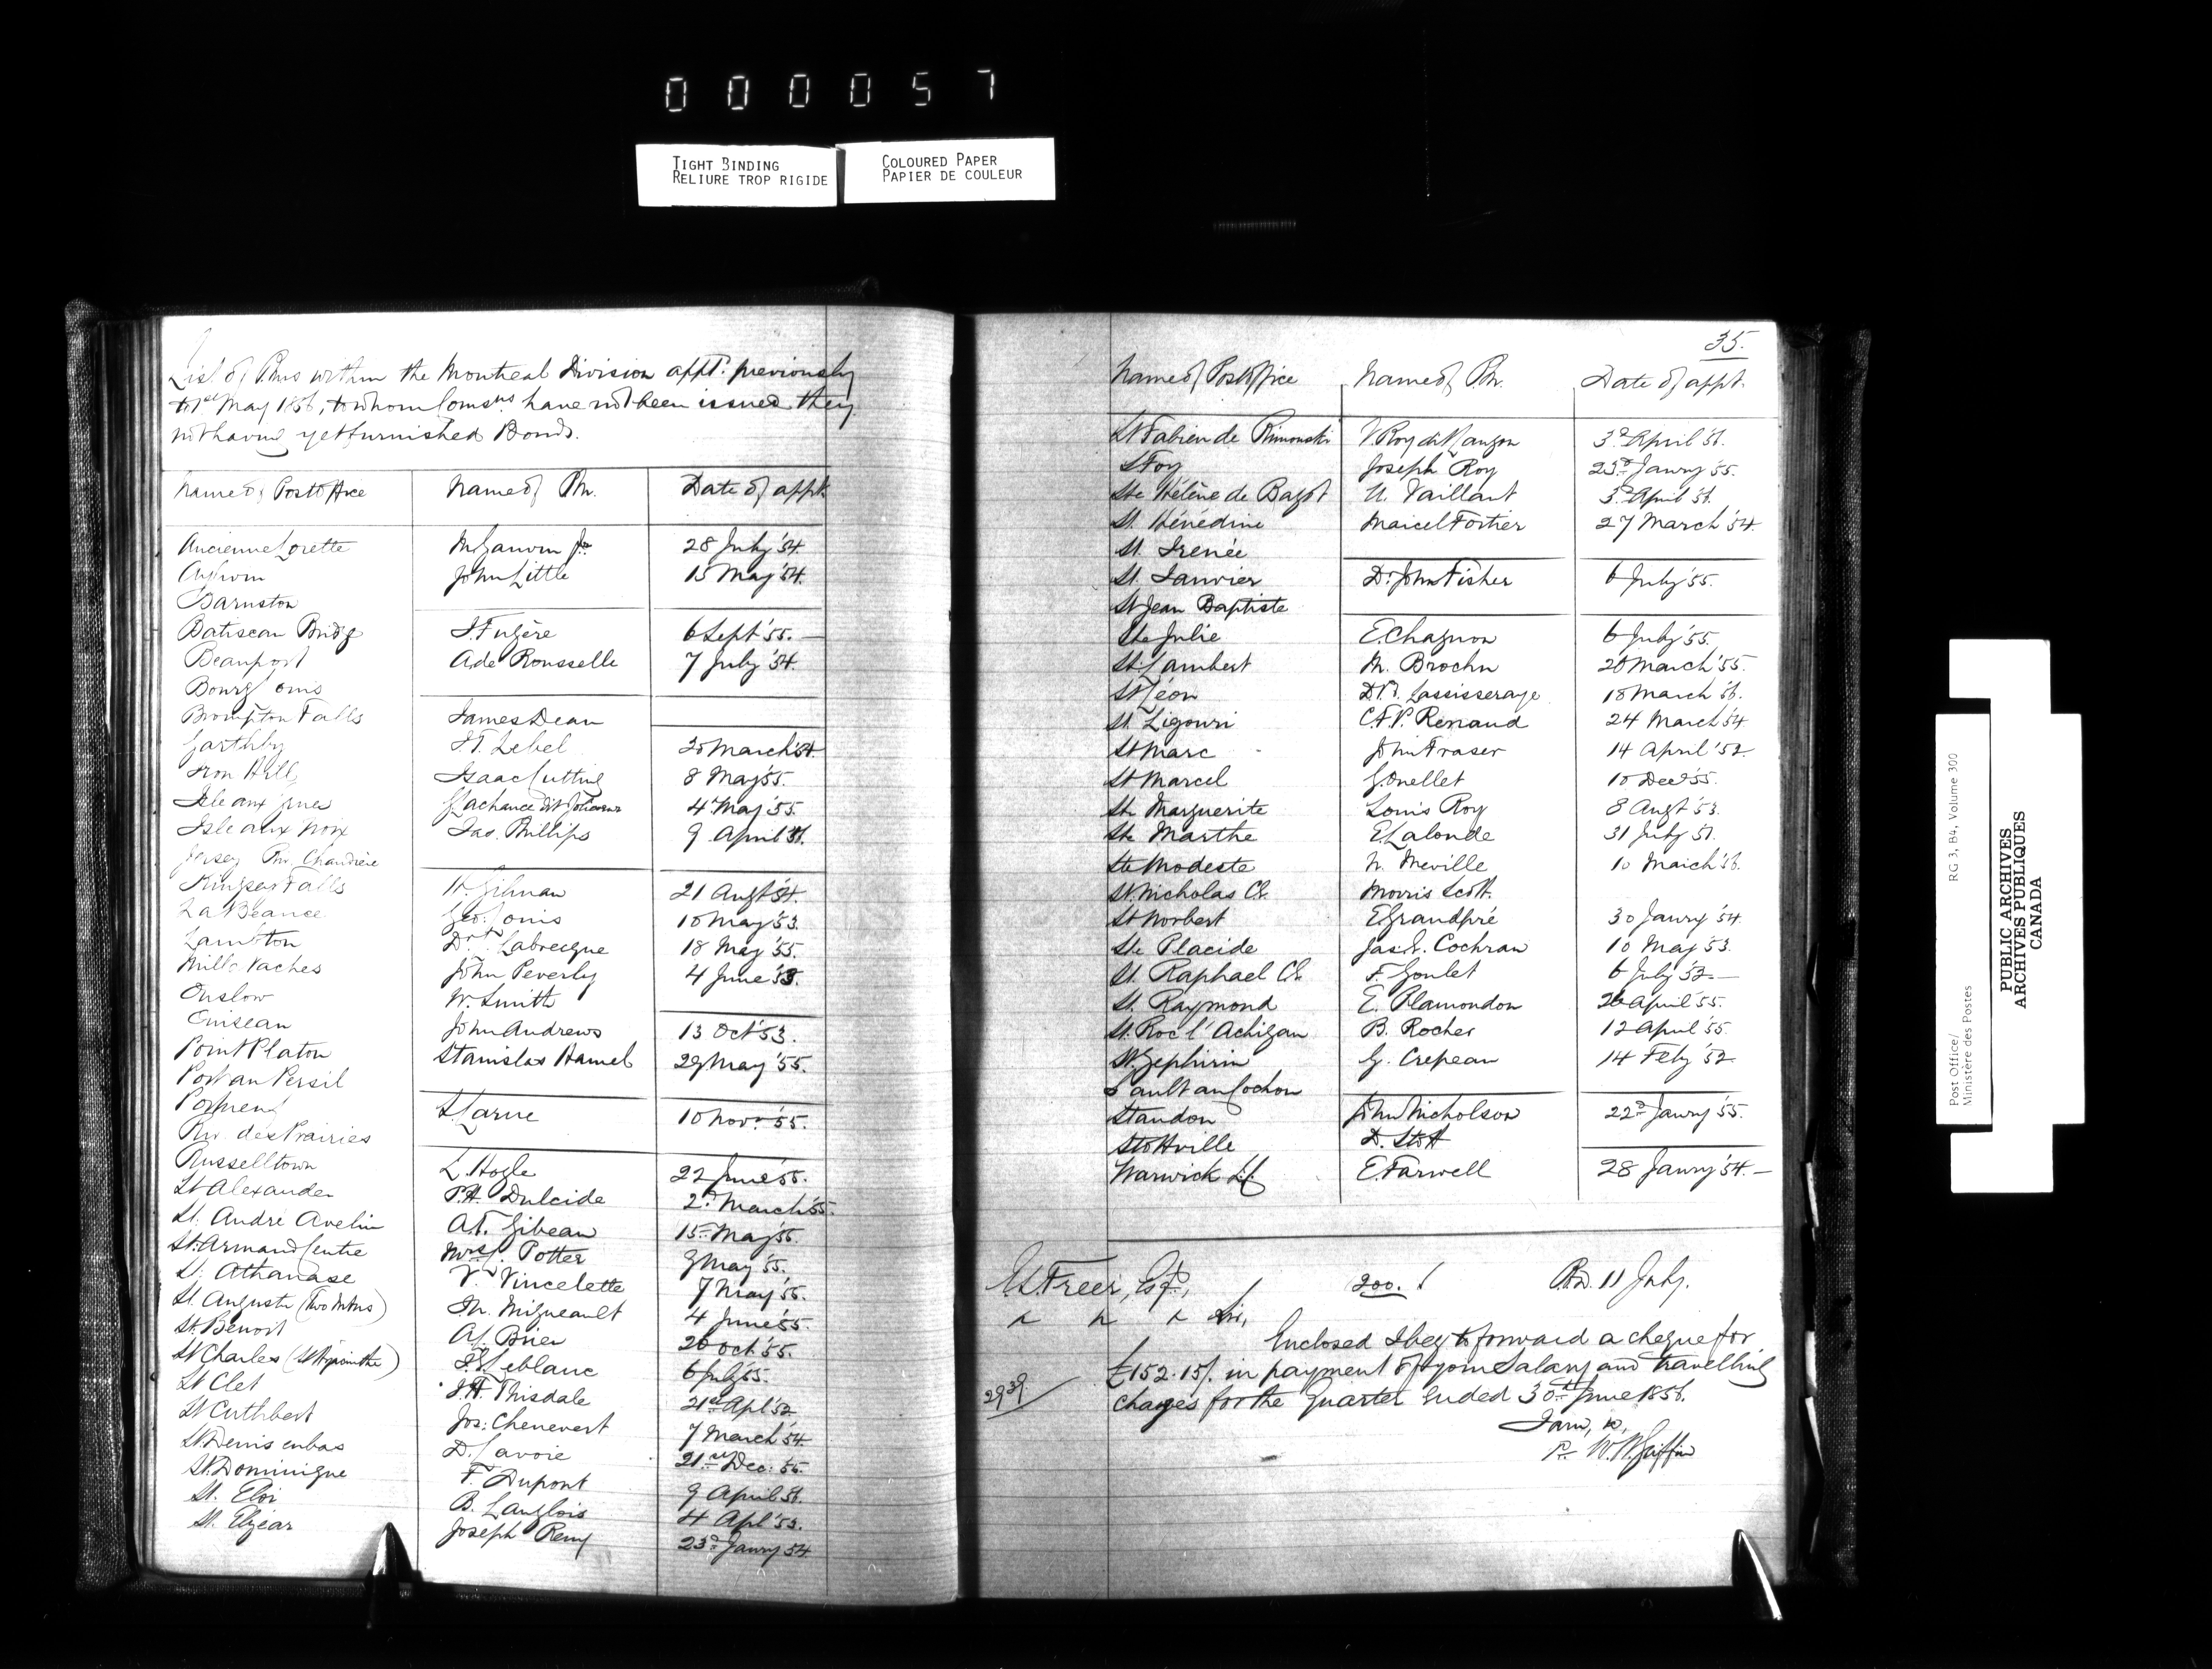 0 0 0 0 5 7
TIGHT BINDING
RELIURE TROP RIGIDE
COLOURED PAPER
PAPIER DE COULEUR
List of Pmrs within the Montreal Division appt. previously
to 1st May 1856, to whom Comsns. have not been issued they
not having yet furnished Bonds.
Name of Post Office Name of Pm. Date of appt.
Ancienne Lorette Jr. 28 July '54.
Aylwin John Little 15 May '54.
Barnston
Batiscan Bridge 6 Sept '55.
Beauport A de Rousselle 7 July '54.
Bourg Louis
Brompton Falls James Dean
Garthby Lebel 30 March '54.
Iron Hill Isaac Cutting 8 May '55.
Isle aux Grues Lachance dit 4 May '55.
Isle aux Noix Jas. Phillips 9 April
Jersey Riv. Chaudière
Kingsey Falls H. Gilman 21 Augt '54.
La Beauce Geo. 10 May '53.
Lambton Dr Labrecque 18 May '55.
Mille Vaches John Peverly 4 June
Onslow W. Smith
John Andrews 13 Oct '53.
Point Platon Stanislas Hamel 29 May '55.
Port au Persil
Larue 10 Novr '55.
Riv. des Prairies
Russelltown L. Hogle 22 June '55.
St Alexander P.H. Dulcide 2d March '55.
St. André Avelin A.T. Gibeau 15 May
St. Armand Centre Mrs Potter 9 May '55.
St. Athanase V. Vincelette 7 May
St. Augustin (Two Mtns) M. Migneault 4 June '55.
St. Benoit Brien 20 Oct '55.
St Charles (St Hyacinthe) Leblanc 6 July '55.
St Clet Thisdale 21st Apl '52
St Cuthbert Jos: Chenevert 7 March '54.
St Denis enbas D. Lavoie 21st Dec:
St. Dominique F. Dupont 9 April
St. Eloi B. Langlois 4 Apl '53.
St. Elzear Joseph Remy 23d Janry 54
35.
Name of Post office Name of Pm. Date of appt.
St Fabien de Rimouski Roy dit Lauzon 3d April
St Foy Joseph Roy 23d Janry '55.
Ste Hélène de Bagot Vaillant 3d April
St. Hénédine Marcel Fortier 27 March '54.
St. Irenée
St. Janvier Dr John Fisher 6 July '55.
St Jean Baptiste
Ste Julie E. Chagnon 6 July '55.
St. Lambert M. Brochu 20 March '55.
St Léon 18 March
St. Ligouri Renaud 24 March '54
St Marc John Fraser 14 April '52.
St Marcel G. Ouellet 10 Decr '55.
Ste Marguerite Louis Roy 8 Augt '53.
Ste Marthe E. Lalonde 31 July
Ste Modeste N. Neville 10 March '56.
St. Nicholas Morris Scott.
St Norbert E. Grandpré 30 Janry '54.
Ste Placide Jas. Cochran 10 May '53.
St. Raphael F. Goulet 6 July '52.
St. Raymond E. Plamondon April '55.
St. Roc l'Achigan B. Rocher 12 April '55.
St. Zephirin G. Crepeau 14 Feby '52.
Sault au Cochon
Standon John Nicholson 22d Janry '55.
Stottville D. Stott
Warwick E. Farwell 28 Janry '54.
Freer, Esqr., 200. 11 July.
Sir,
Enclosed I beg to forward a cheque for
£152.15/. in payment of your Salary and travelling
2939
charges for the quarter ended 30th June 1856.
I am, &c,
W. H. Griffin
Post Office/ RG 3, B4, Volume 300
Ministère des Postes
PUBLIC ARCHIVES
ARCHIVES PUBLIQUES
CANADA